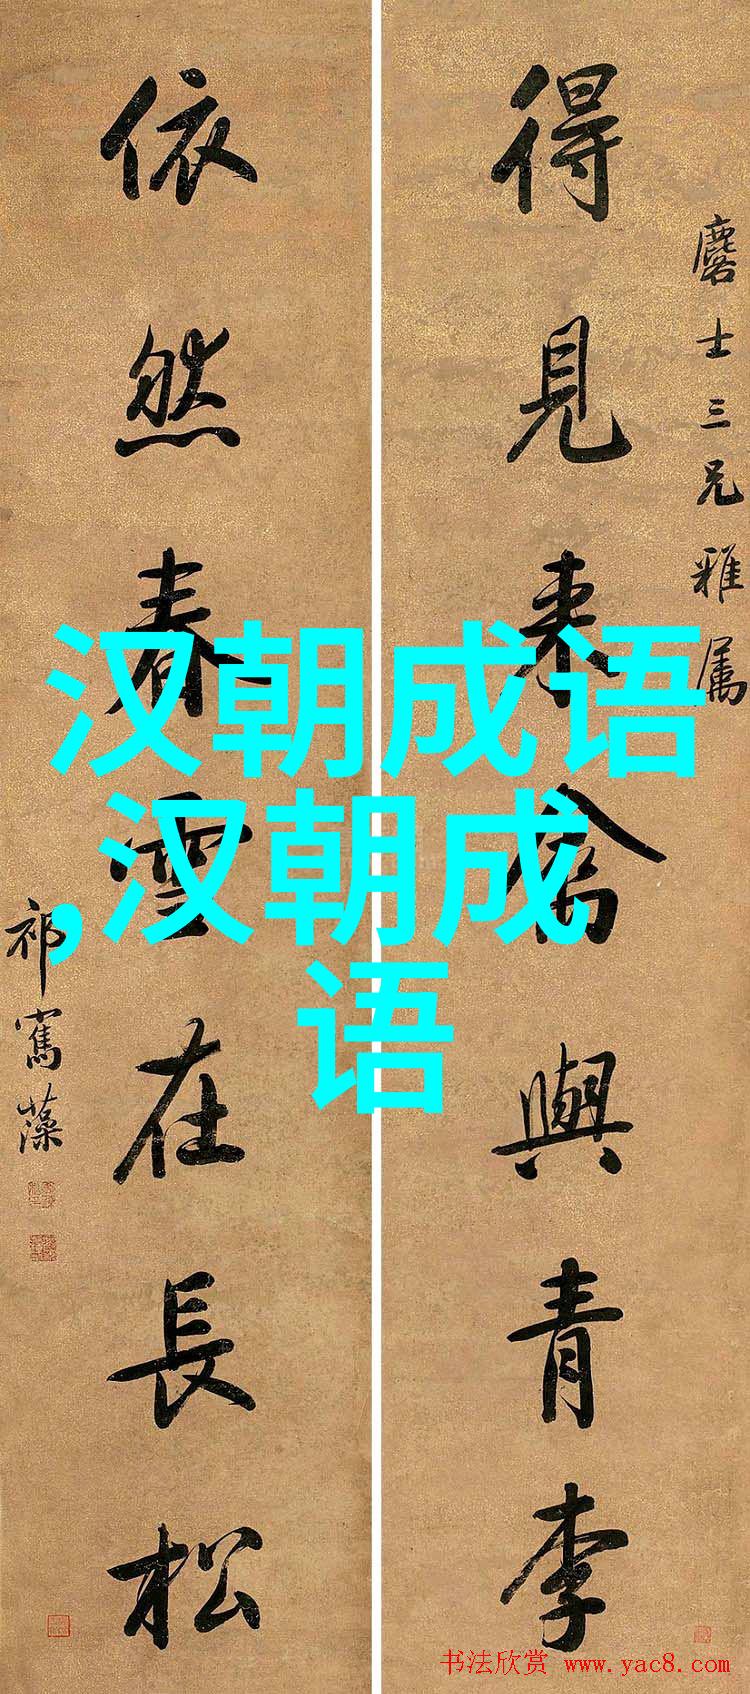 得見来禽與青李
麐士三兄雅屬
依然春雪在長松
祁寯藻
汉朝成语
,汉朝成
语
书法欣赏 www.yac8.com